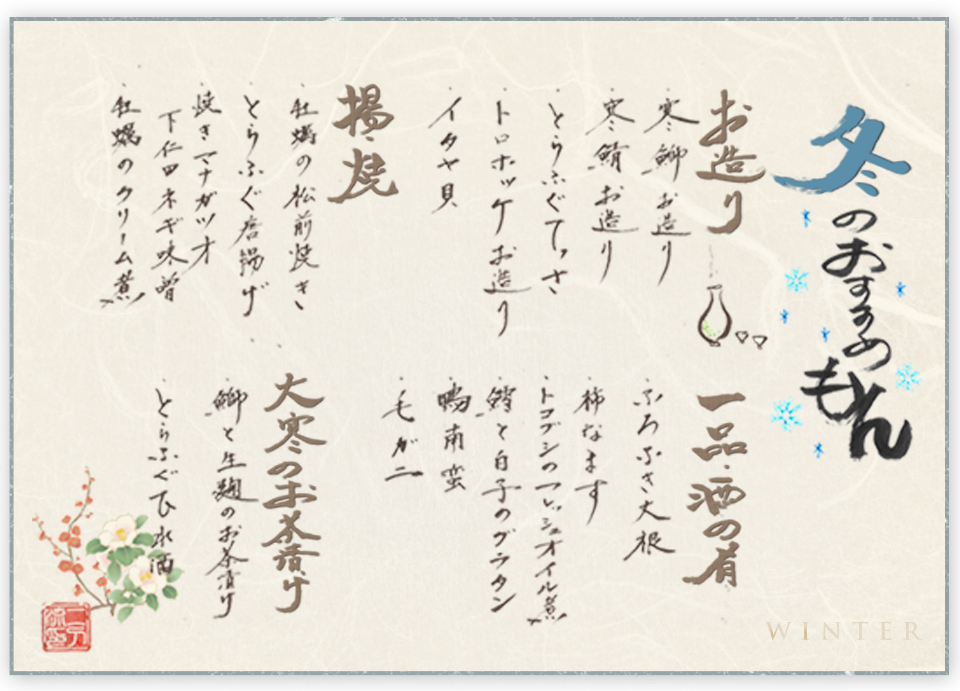 冬のおすすめもん
お造り
・寒鰤お造り
・寒鯖お造り
・とらふぐてっさ
・トロホッケお造り
・イタヤ貝
一品・酒の肴
・ふろふき大根
・柿なます
・トコブシのフレッシュオイル煮
・鱈と白子のグラタン
・鴨南蛮
・毛ガニ
揚・焼
・牡蠣の松前焼き
・とらふぐ唐揚げ
・焼きマナガツオ
下仁田ネギ味噌
・牡蠣のクリーム煮
大寒のお茶漬け
・鰤と生麹のお茶漬け
・とらふぐひれ酒
WINTER